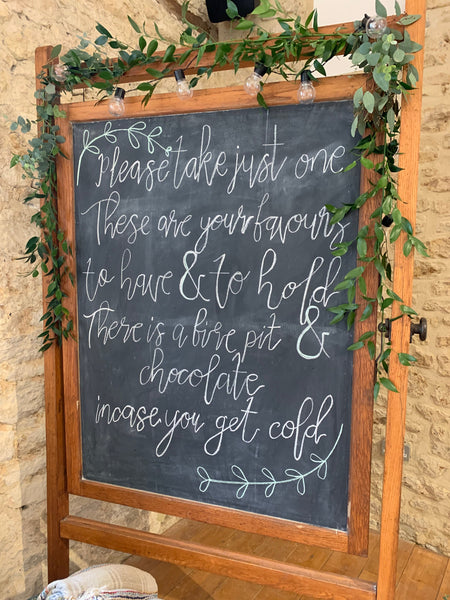 Please take just one
These are your favours
to have & to hold
There is a fire pit &
chocolate
incase you get cold